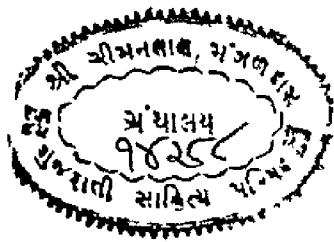 શ્રી ચીમનલાલ મંગળદાસ
ગ્રંથાલય
૧૪૨૬૮
ગુજરાતી સાહિત્ય પરિષદ